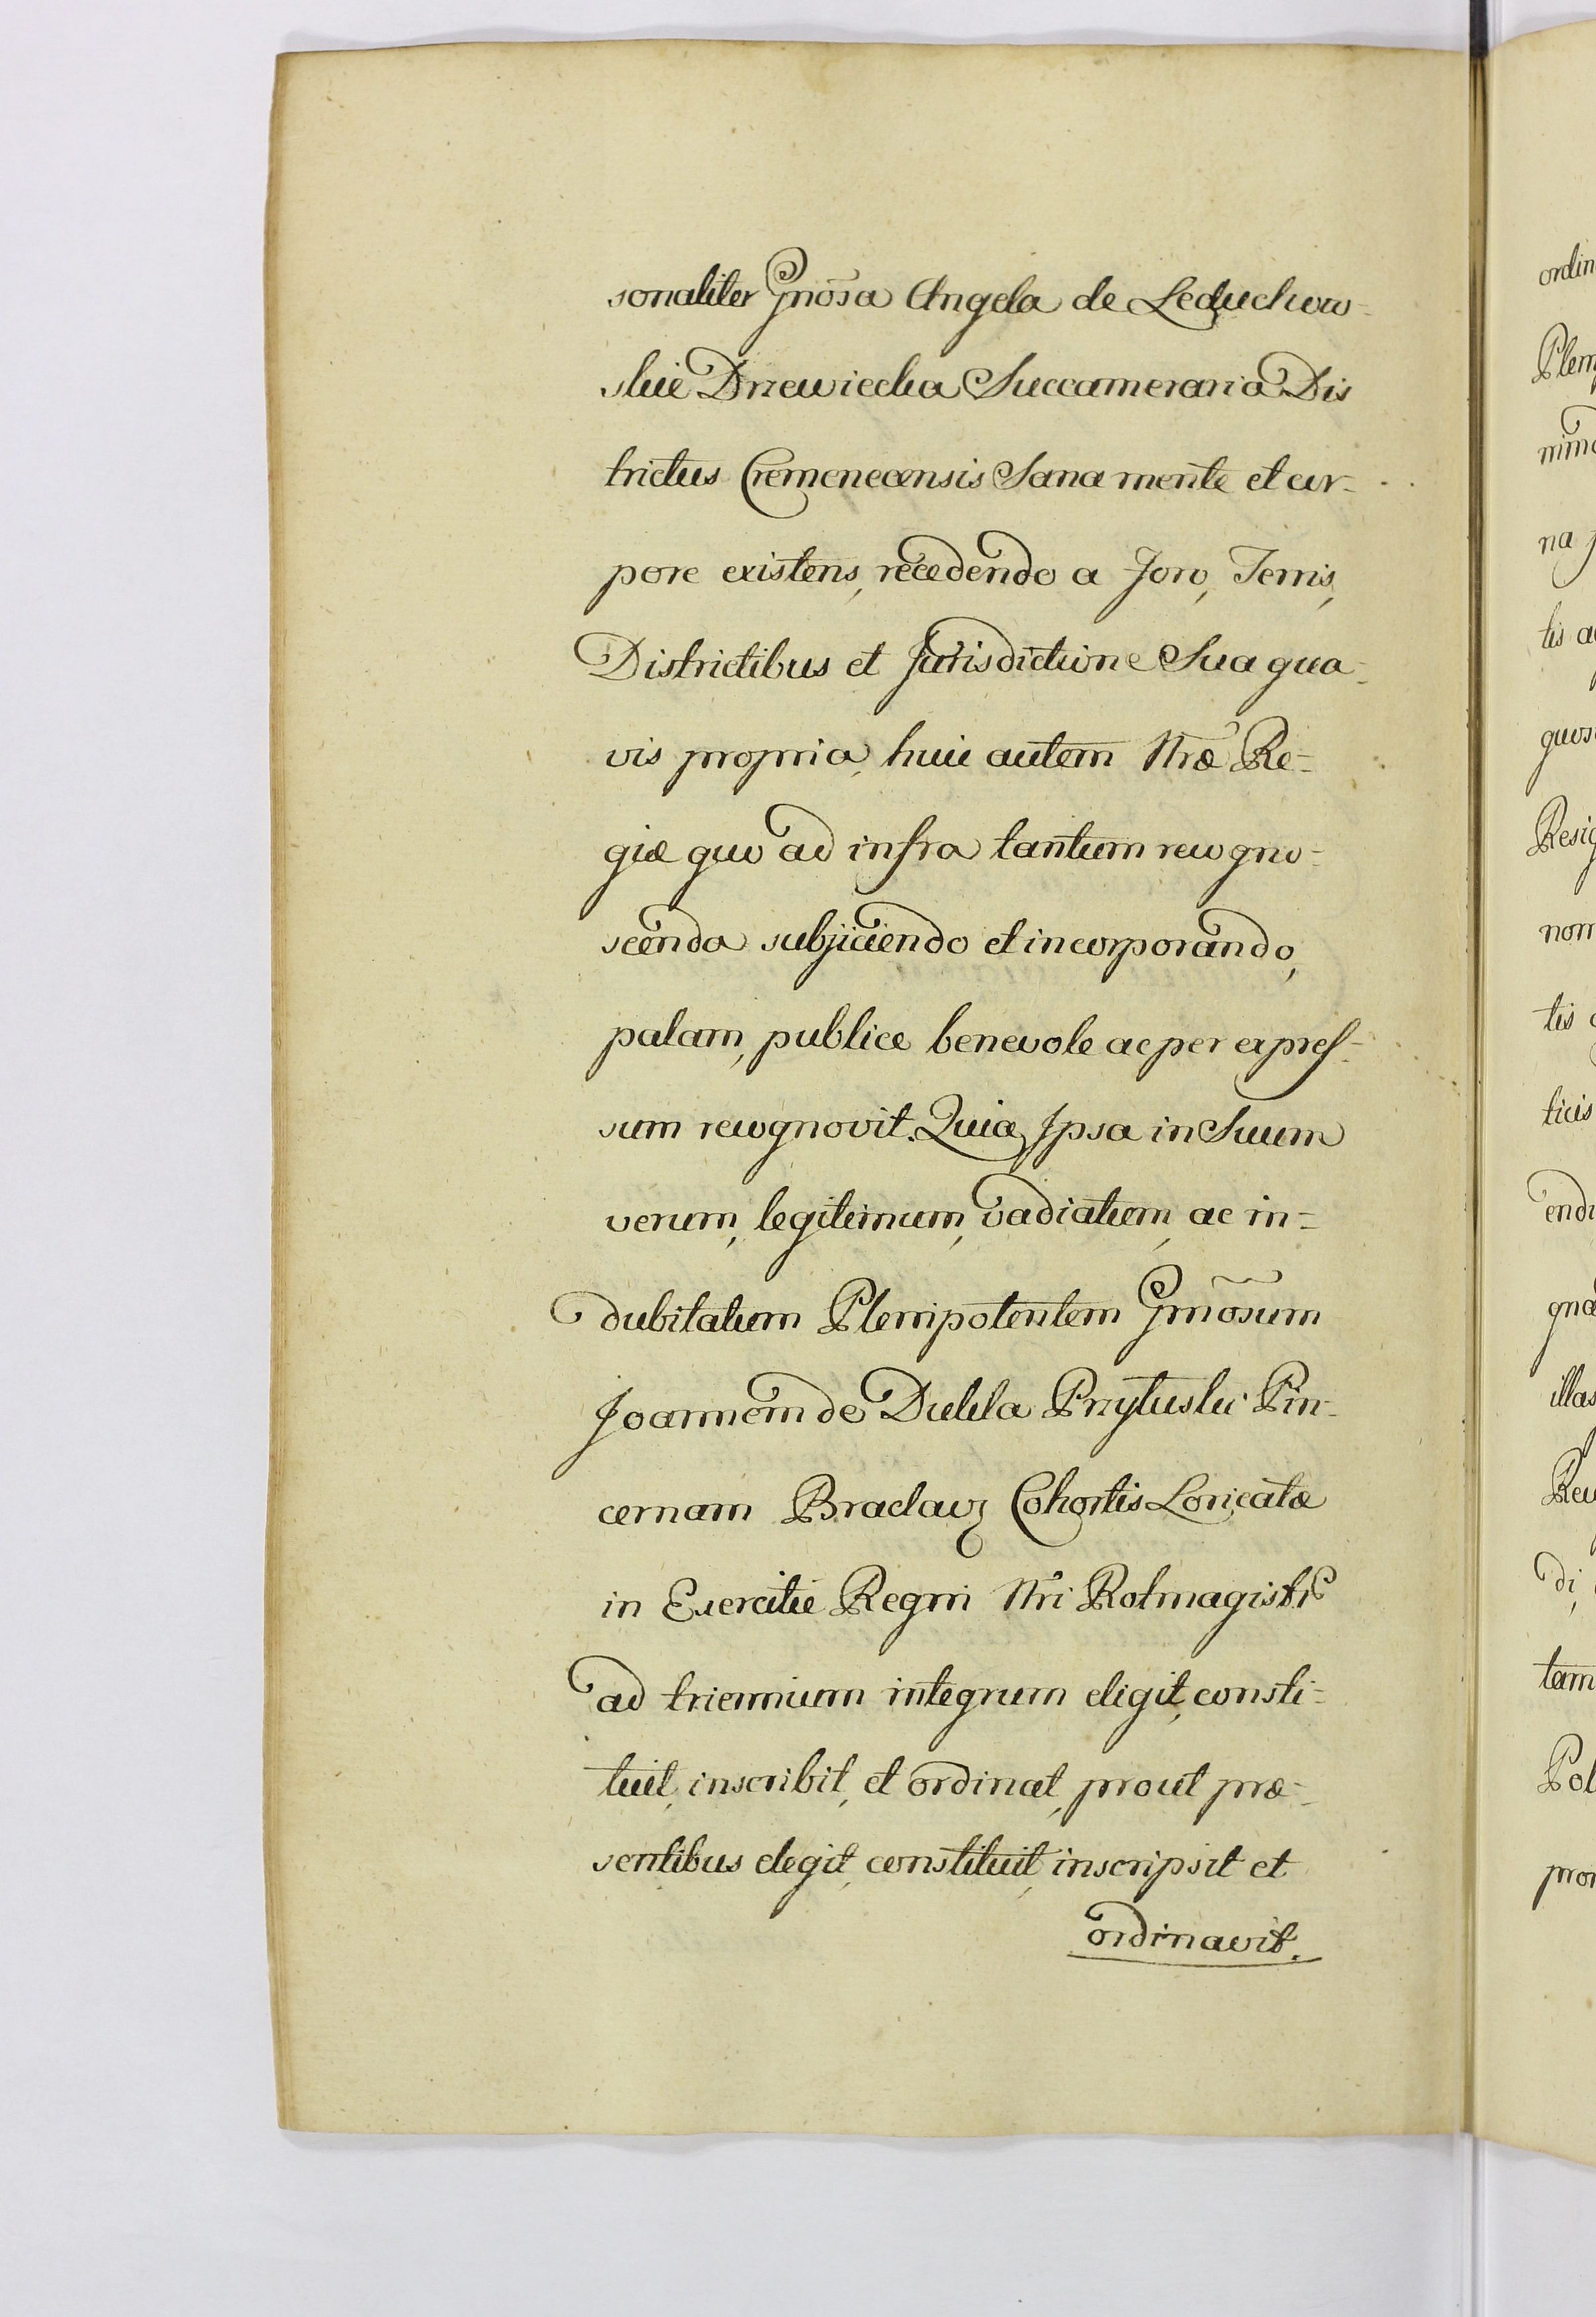 sonaliter Gnosa Angela de Leduchow-
skie Drzewiecka Succameraria Dis
trictus Cremenecensis Sana mente et cor-
pore existens, recedendo a Foro, Terris,
Districtibus et Jurisdictione Sua qua-
vis propria, huic autem Nræ Re-
giæ quo ad infra tantum recogno-
scenda subjiciendo et incorporando,
palam, publice benevole ac per expres-
sum recognovit. Quia Ipsa in Suum
verum, legitimum, vadiatum, ac in-
dubitatum Plenipotentem Gnosum
Joannem de Dukla Przytuski Pin-
cernam Braclavz Cohortis Loricatæ
in Exercitu Regni Nri Rotmagistr
ad triennium integrum eligit, consti-
tuit, inscribit, et ordinat, prout præ-
sentibus elegit, constituit, inscripsit et
ordinavit.
ordin
Plem
na p
tis a
quos
Resig
nom
tis
ticis
endi
gnæ
illas
di,
tam
Pol